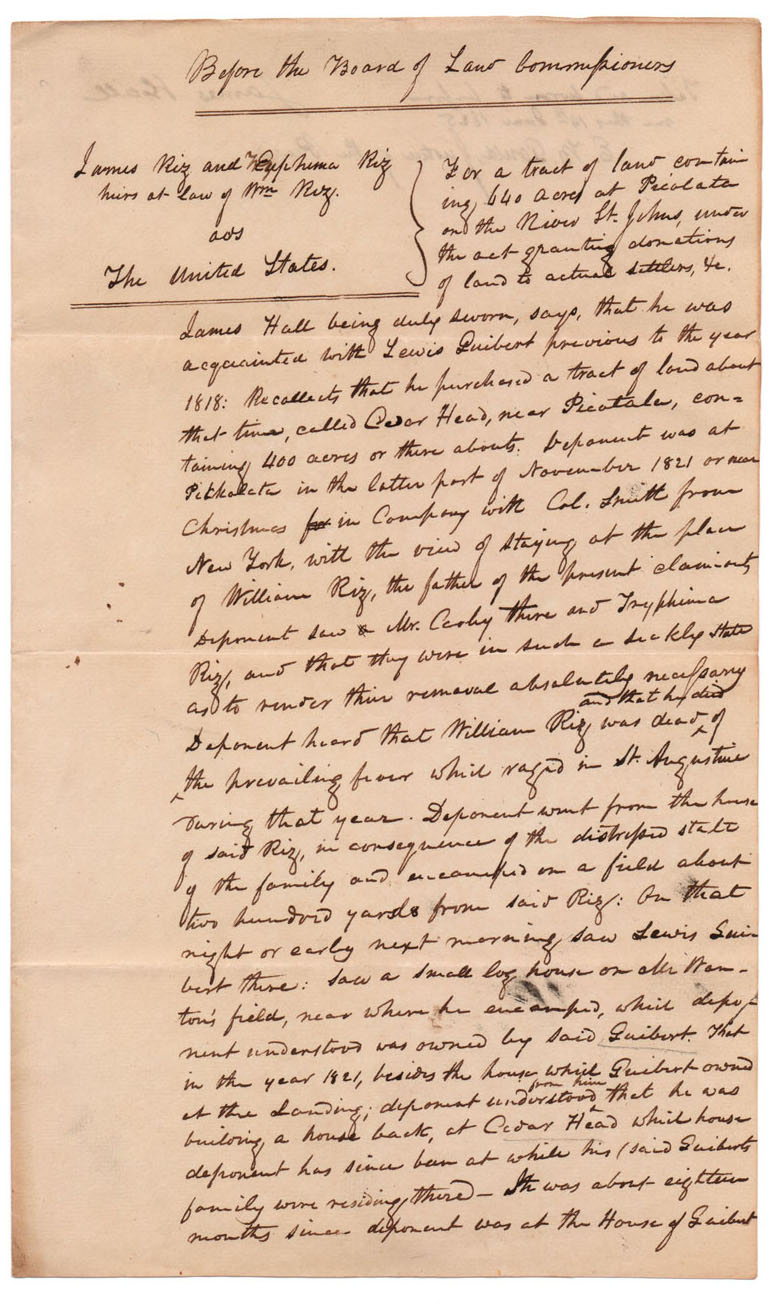 Before the Board of Land Commissioners
James Riz and Tryphima Riz
heirs at Law of Wm Riz.
ads
The United States.
For a tract of land contain
ing 640 acres at Picolata
on the River St. Johns, under
the act granting donations
of land to actual settlers, &c.
James Hall being duly sworn, says, that he was
acquainted with Lewis Guibert previous to the year
1818: Recollects that he purchased a tract of land about
that time, called Cedar Head, near Picolata, con=
taining 400 acres or there abouts. Deponent was at
Pikkolata in the latter part of November 1821 or near
Christmas in Company with Col. Smith from
New York, with the view of staying at the place
of William Riz, the father of the present claimants
Deponent saw Mr. Cooly there and Tryphima
Riz, and that they were in such a sickly state
as to render their removal absolutely necessary
Deponent heard that William Riz was dead and that he died of
the prevailing fever which raged in St. Augustine
during that year. Deponent went from the house
of said Riz, in consequence of the distressed state
of the family and encamped on a field about
two hundred yards from said Riz: On that
night or early next morning saw Lewis Gui
bert there: saw a small log house on Mr Wan-
ton's field, near where he encamped, which depo-
nent understood was owned by said Guibert. That
in the year 1821, besides the house which Guibert owned
at the Landing; deponent understood from him that he was
building a house back, at Cedar Head which house
deponent has since been at while his (said Guiberts
family were residing there) - It was about eighteen
months since deponent was at the House of Guibert